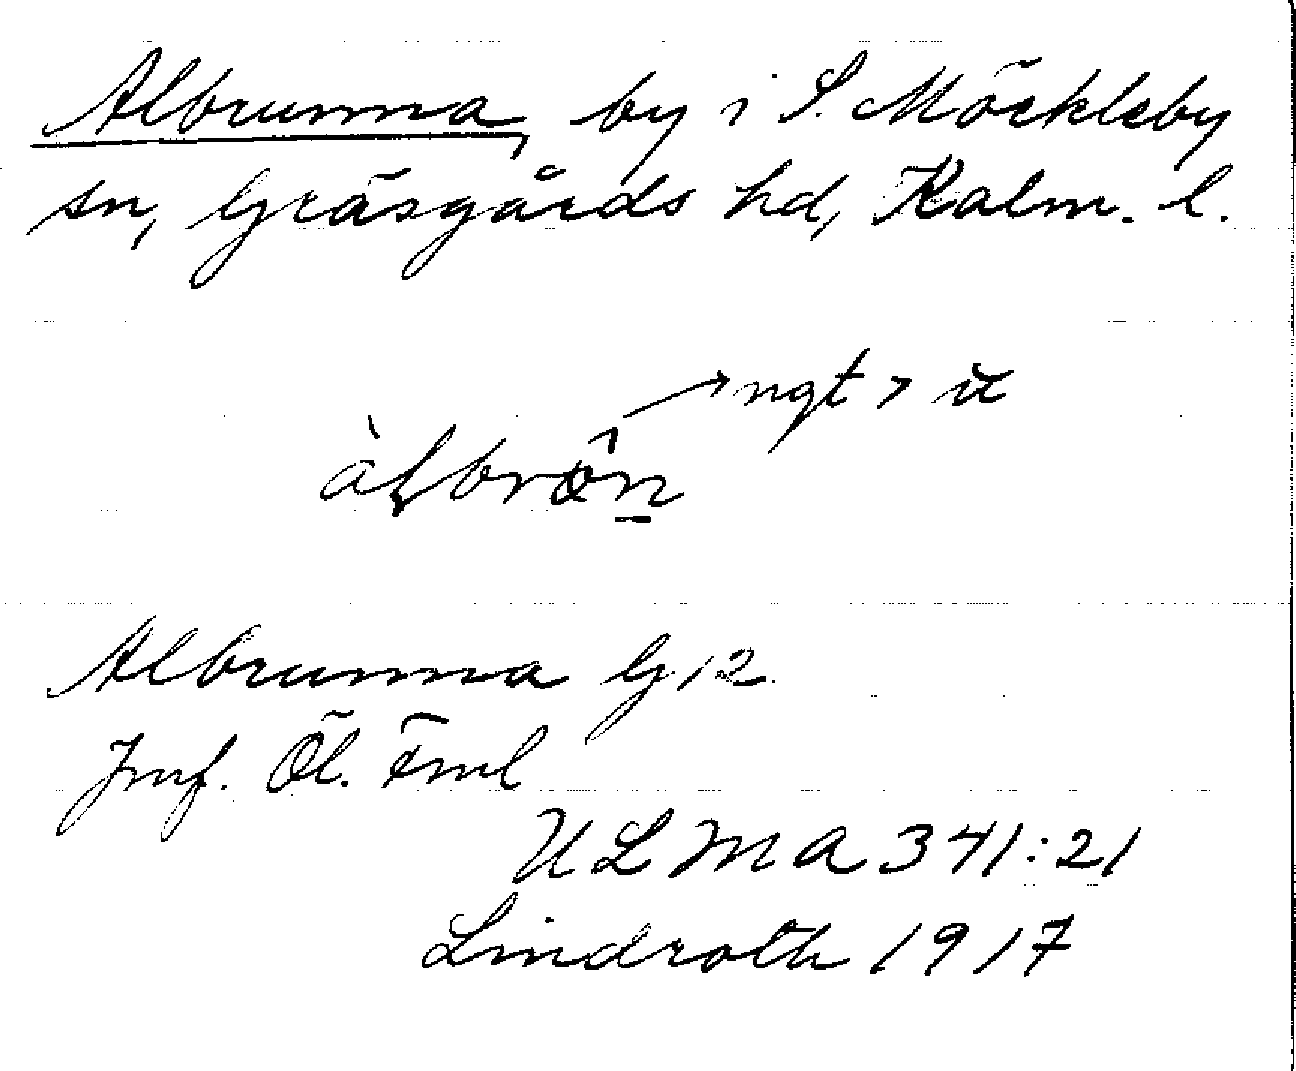 Albrunna, by i S. Möckleby
sn, Gräsgårds hd, Kalm. l.
ngt > u
Albrunna G 12
Jmf. Öl. Fml
ULMA 341:21
Lindroth 1917